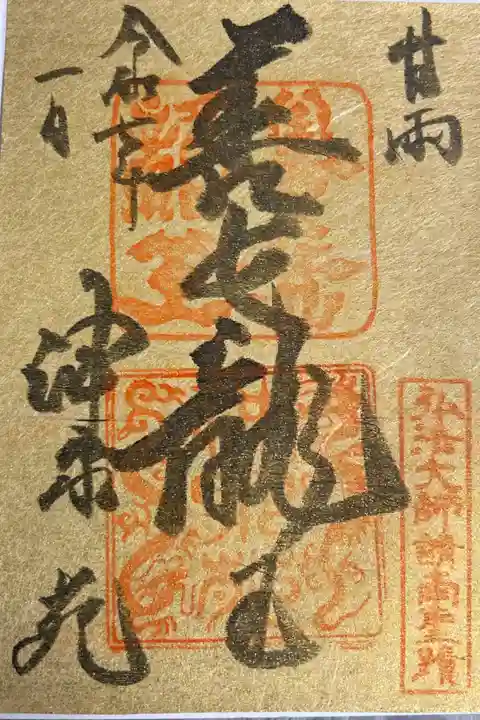 甘雨
善女龍王
神泉苑
令和七年
一月
弘法大師請雨